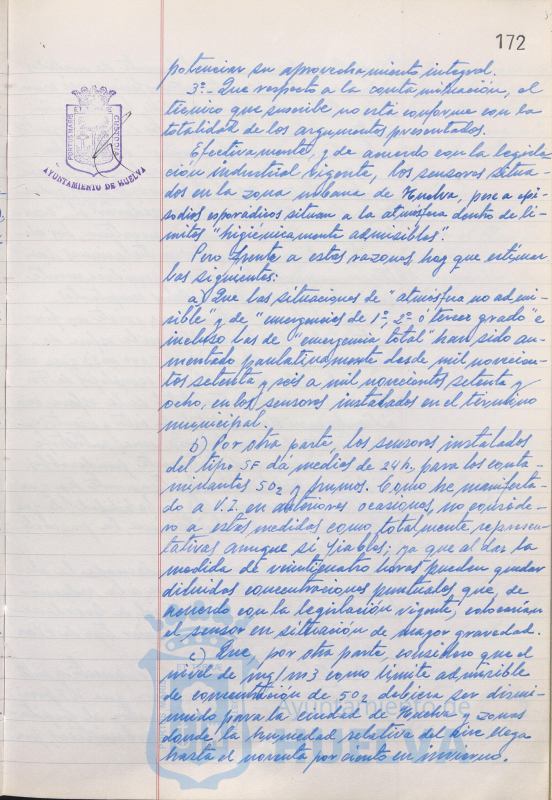 172
PORTUS MARIS
CUSTODIA
AYUNTAMIENTO DE HUELVA
potenciar su aprovechamiento integral.
3º.- Que respecto a la contaminación, el
técnico que suscribe no está conforme con la
totalidad de los argumentos presentados.
Efectivamente, y de acuerdo con la legisla
ción industrial vigente, los sensores situa-
dos en la zona urbana de Huelva, pese a epi-
sodios esporádicos situan a la atmósfera dentro de lí-
mites "higiénicamente admisibles".
Pero frente a estas razones, hay que estimar
las siguientes:
a) Que las situaciones de "atmósfera no admi-
sible" y de "emergencias de 1º, 2º ó tercer grado" e
incluso las de "emergencia total" han sido au-
mentado paulatinamente desde mil novecien-
tos setenta y seis a mil novecientos setenta y
ocho, en los sensores instalados en el término
municipal.
b) Por otra parte, los sensores instalados
del tipo SF dá medias de 24h. para los conta-
minantes SO2 y humos. Como he manifesta-
do a V.I. en anteriores ocasiones, no conside-
ro a estas medidas como totalmente represen-
tativas aunque si fiables; ya que al dar la
medida de veinticuatro horas pueden quedar
diluidas concentraciones puntuales que, de
acuerdo con la legislación vigente, colocarian
el sensor en situación de mayor gravedad.
c) Que, por otra parte, considero que el
nivel de mg/m3 como límite admisible
de concentración de SO2 debiera ser dismi-
nuido para la ciudad de Huelva y zonas
donde la humedad relativa del aire llega
hasta el noventa por ciento en invierno.
Ayuntamiento de
HUELVA